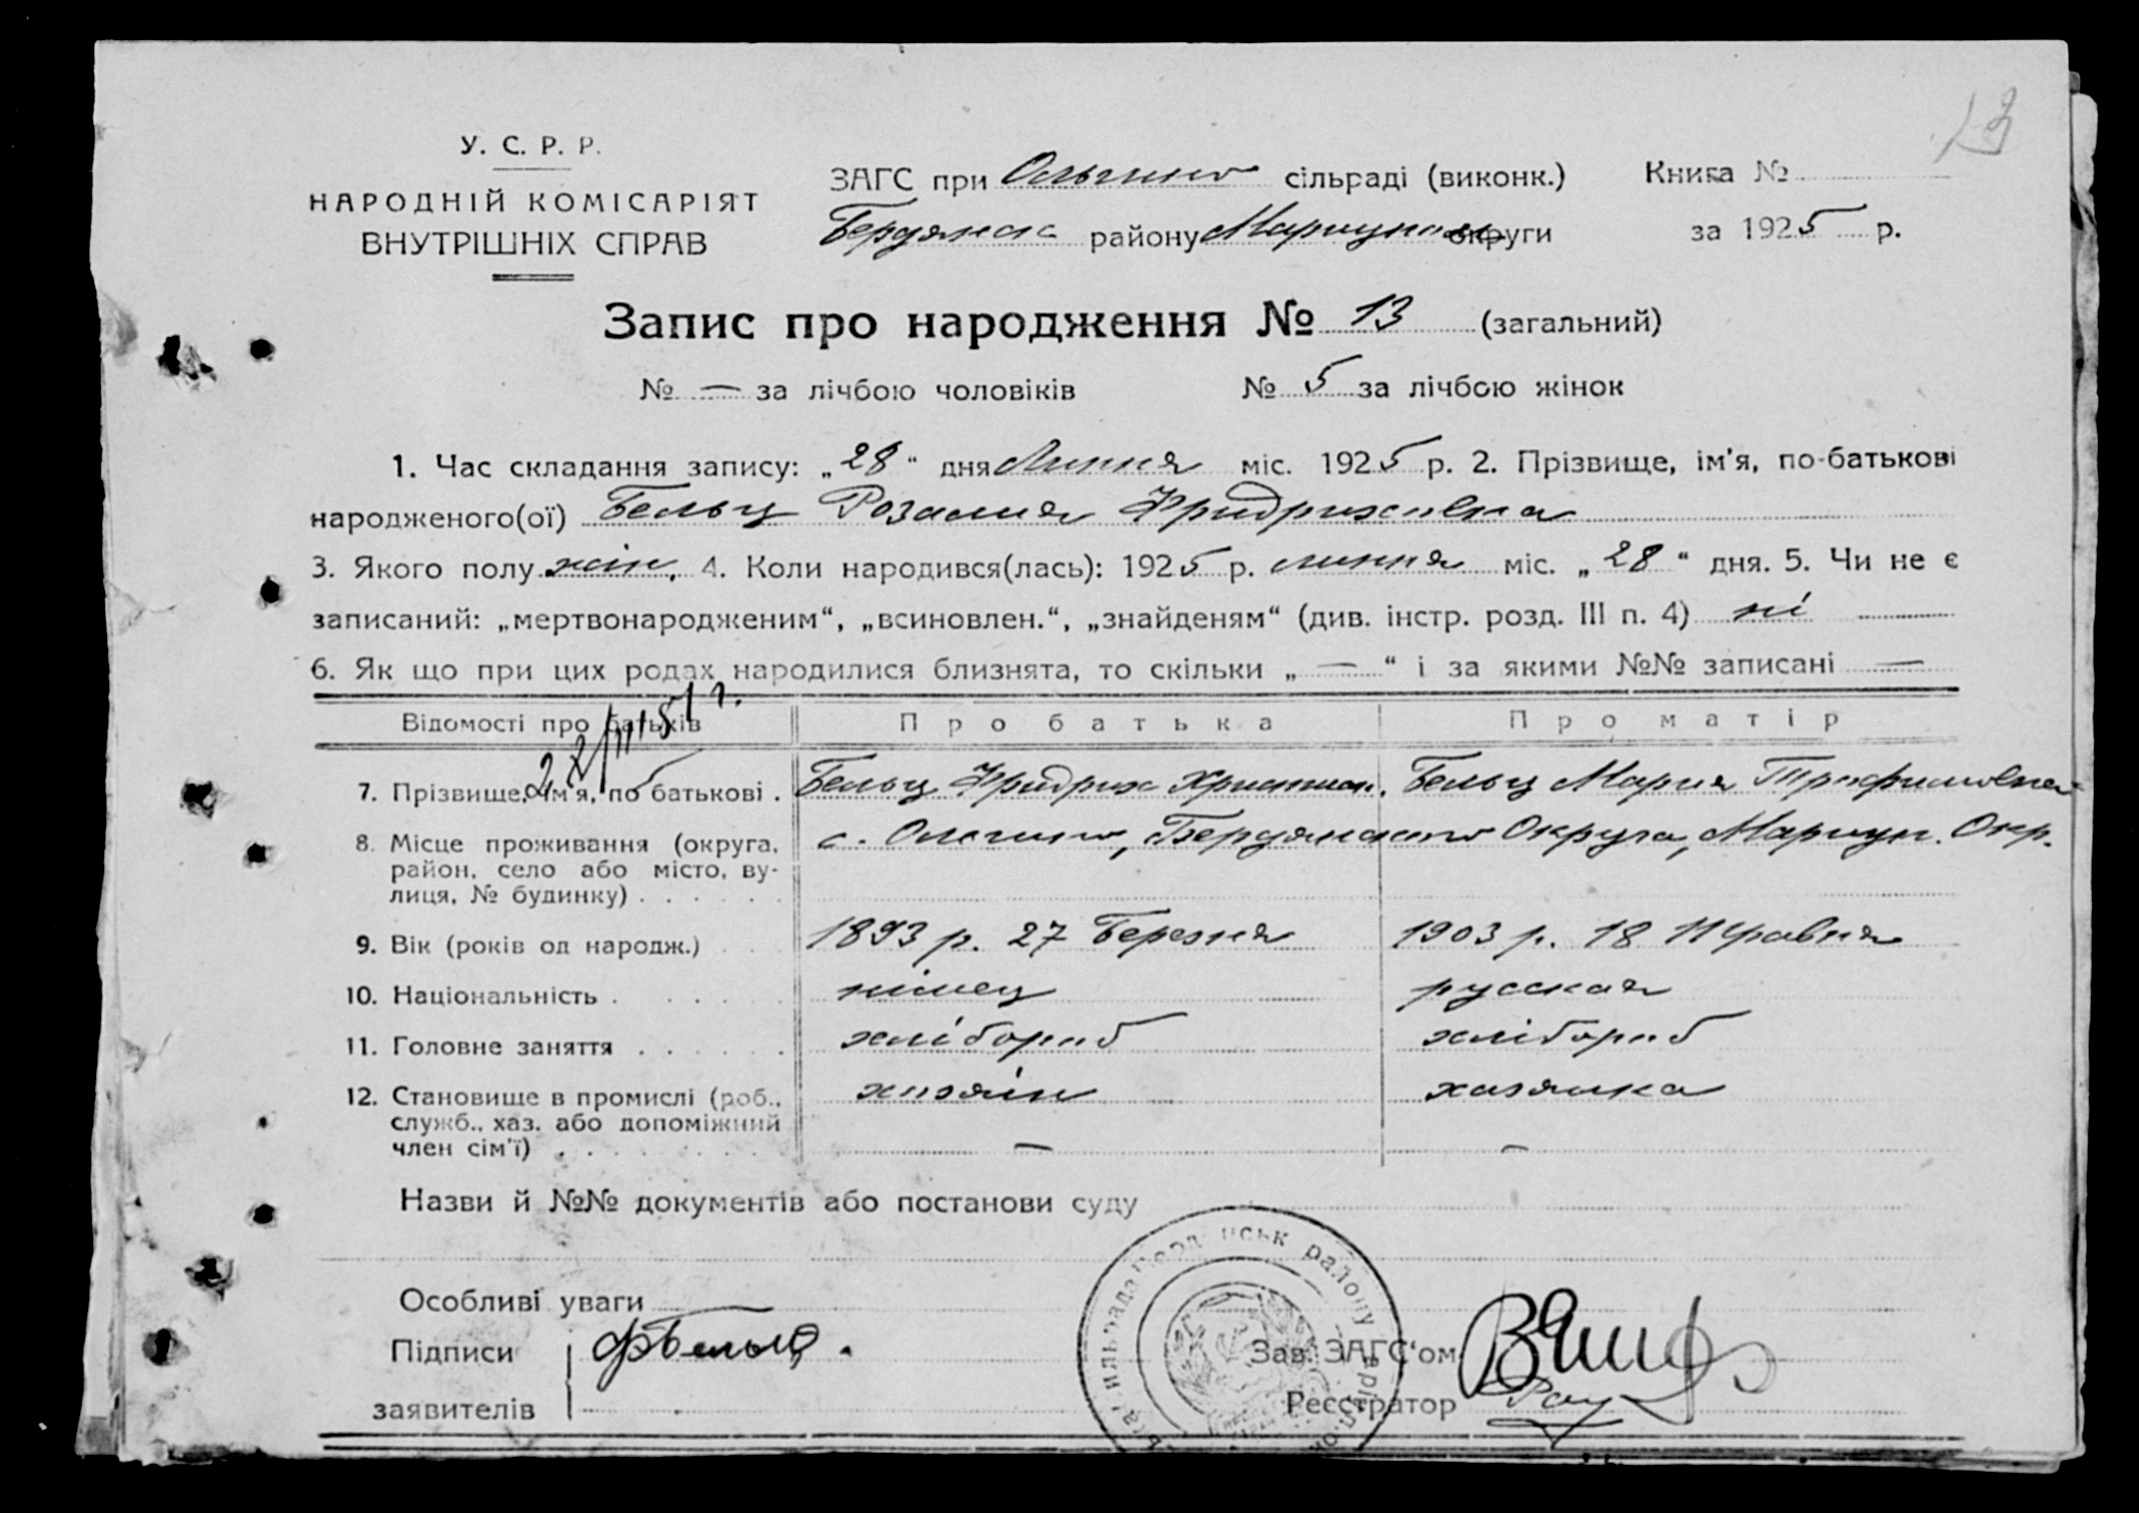 13
У. С. Р. Р.
НАРОДНІЙ КОМІСАРІЯТ
ВНУТРІШНІХ СПРАВ
ЗАГС при Ольгино сільраді (виконк.) Книга №
Бердянск району Мариупол округи за 1925 р.
Запис про народження № 13 (загальний)
№ — за лічбою чоловіків № 5 за лічбою жінок
1. Час складання запису: „28“ дня Липня міс. 1925 р. 2. Прізвище, ім'я, по-батькові
народженого(ої) Бельц Розалия Фридриховна
3. Якого полу жін. 4. Коли народився(лась): 1925 р. липня міс. „28“ дня. 5. Чи не є
записаний: „мертвонародженим“, „всиновлен.“, „знайденям“ (див. інстр. розд. III п. 4) ні
6. Як що при цих родах народилися близнята, то скільки „—“ і за якими №№ записані —
Відомості про батьків Про батька Про матір
22/III 51 г.
7. Прізвище, ім'я, по батькові . Бельц Фридрих Христиан. Бельц Мария Трофимовна
8. Місце проживання (округа, с. Ольгино, Бердянского Округа, Мариуп. Окр.
район, село або місто, ву-
лиця, № будинку) . . . . . .
9. Вік (років од народж.) 1893 р. 27 Березня 1903 р. 18 Травня
10. Національність . німец русская
11. Головне заняття . . . . . . хлібороб хлібороб
12. Становище в промислі (роб., хозяін хазяика
служб., хаз. або допоміжний
член сім'ї) . — —
Назви й №№ документів або постанови суду
Особливі уваги
Підписи ФБельц.
Зав. ЗАГС'ом
заявителів
Реєстратор Рау